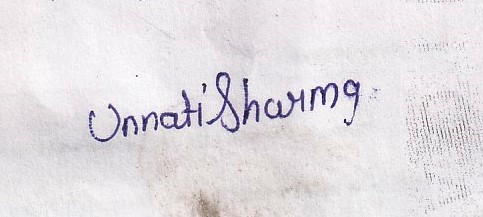 Unnati Sharma